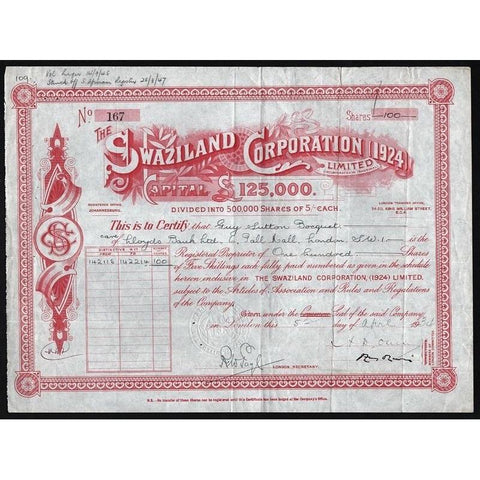 109
Vol. Liqn 14/9/45
Struck off S. African Register 28/3/47
No 167
Shares -100-
THE
SWAZILAND CORPORATION (1924)
LIMITED
CAPITAL £125,000.
DIVIDED INTO 500,000 SHARES OF 5/- EACH.
REGISTERED OFFICE
JOHANNESBURG.
LONDON TRANSFER OFFICE,
KING WILLIAM STREET,
E.C.4
This is to Certify that Guy Sutton Bocquet
care of Lloyds Bank Ltd. 6, Pall Mall, London. S.W.1 is the
Registered Proprietor of One hundred Shares
of Five Shillings each fully paid numbered as given in the schedule
herein; inclusive in THE SWAZILAND CORPORATION, (1924) LIMITED.
subject to the Articles of Association and Rules and Regulations
of the Company.
142115 142214 100
Given under the Seal of the said Company
in London this 5 day of April
LONDON SECRETARY.
N.B.- No transfer of these Shares can be registered until this Certificate has been lodged at the Company's Office.